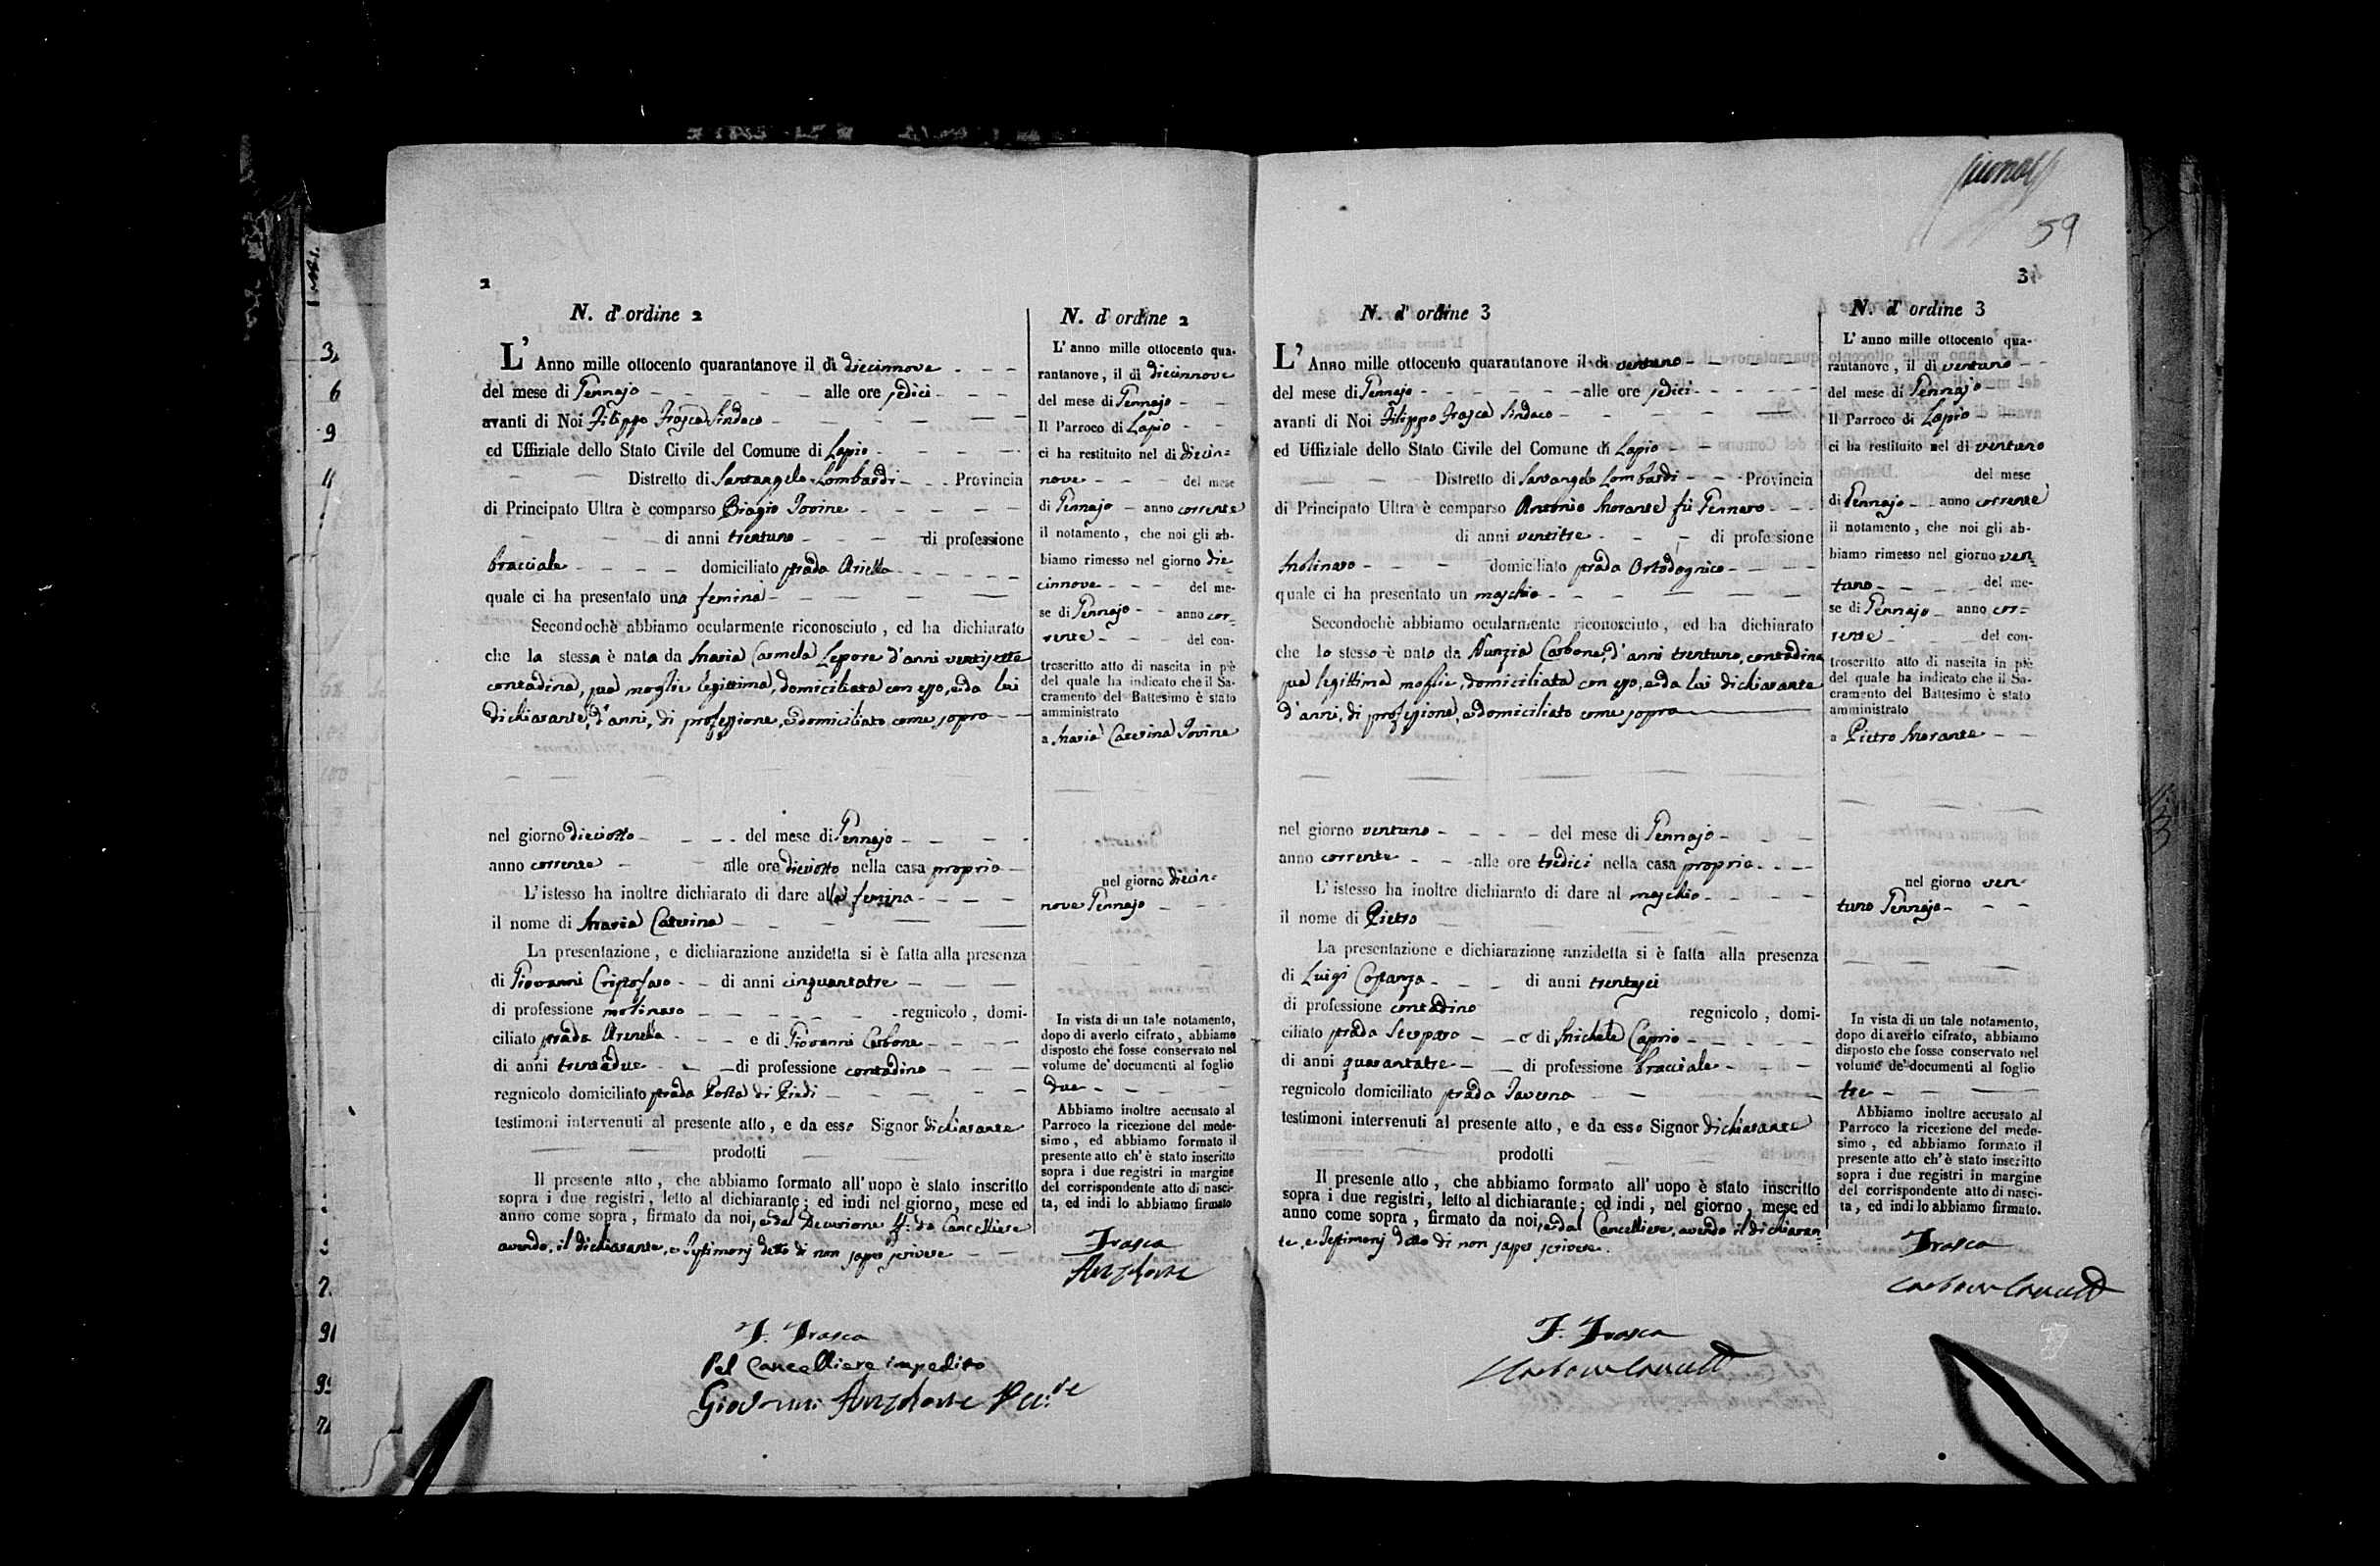 2
N. d'ordine 2
L' Anno mille ottocento quarantanove il di diecinnove
del mese di Gennajo alle ore sedici
avanti di Noi Filippo Frasca Sindaco
ed Uffiziale dello Stato Civile del Comune di Lapio
Distretto di Santangelo Lombardi Provincia
di Principato Ultra è comparso Biagio Iovine
di anni trentuno di professione
bracciale domiciliato strada Ariella
quale ci ha presentato una femina
Secondochè abbiamo ocularmente riconosciuto, ed ha dichiarato
che la stessa è nata da Maria Carmela Lepore d'anni ventisette
contadina, sua moglie legittima, domiciliata con esso, e da lui
dichiarante, d'anni, di professione, e domiciliato come sopra
nel giorno dieciotto del mese di Gennajo
anno corrente alle ore dieciotto nella casa propria
L'istesso ha inoltre dichiarato di dare alla femina
il nome di Maria Caterina
La presentazione, e dichiarazione anzidetta si è fatta alla presenza
di Giovanni Cristofaro di anni cinquantatre
di professione molinaro regnicolo, domi-
ciliato strada Arenella e di Giovanni Carbone
di anni trentadue di professione contadino
regnicolo domiciliato strada Costa di Piedi
testimoni intervenuti al presente atto, e da esso Signor dichiarante
prodotti
Il presente atto, che abbiamo formato all'uopo è stato inscritto
sopra i due registri, letto al dichiarante; ed indi nel giorno, mese ed
anno come sopra, firmato da noi, e dal Decurione ff. da Cancelliere
avendo, il dichiarante, e Testimonj detto di non saper scrivere
F. Frasca
Pel Cancelliere impedito
Giovanni
N. d'ordine 2
L'anno mille ottocento qua-
rantanove, il di diecinnove
del mese di Gennajo
Il Parroco di Lapio
ci ha restituito nel di diecin=
nove del mese
di Gennajo anno corrente
il notamento, che noi gli ab-
biamo rimesso nel giorno die
cinnove del me-
se di Gennajo anno cor=
rente del con-
troscritto atto di nascita in piè
del quale ha indicato che il Sa-
cramento del Battesimo è stato
amministrato
a Maria Caterina Iovine
nel giorno diecin=
nove Gennajo
In vista di un tale notamento,
dopo di averlo cifrato, abbiamo
disposto che fosse conservato nel
volume de' documenti al foglio
due
Abbiamo inoltre accusato al
Parroco la ricezione del mede-
simo, ed abbiamo formato il
presente atto ch'è stato inscritto
sopra i due registri in margine
del corrispondente atto di nasci-
ta, ed indi lo abbiamo firmato
Frasca
59
3
N. d'ordine 3
L' Anno mille ottocento quarantanove il di ventuno
del mese di Gennajo alle ore sedici
avanti di Noi Filippo Frasca Sindaco
ed Uffiziale dello Stato Civile del Comune di Lapio
Distretto di Santangelo Lombardi Provincia
di Principato Ultra è comparso Antonio Morante fù Gennaro
di anni ventitre di professione
Molinaro domiciliato strada Ortodognico
quale ci ha presentato un maschio
Secondochè abbiamo ocularmente riconosciuto, ed ha dichiarato
che lo stesso è nato da Nunzia Carbone, d'anni trentuno, contadina
sua legittima moglie, domiciliata con esso, e da lui dichiarante
d'anni, di professione, e domiciliato come sopra
nel giorno ventuno del mese di Gennajo
anno corrente alle ore tredici nella casa propria
L'istesso ha inoltre dichiarato di dare al maschio
il nome di Pietro
La presentazione e dichiarazione anzidetta si è fatta alla presenza
di Luigi Costanza di anni trentasei
di professione contadino regnicolo, domi-
ciliato strada e di Michele Caprio
di anni quarantatre di professione bracciale
regnicolo domiciliato strada Taverna
testimoni intervenuti al presente atto, e da esso Signor dichiarante
prodotti
Il presente atto, che abbiamo formato all'uopo è stato inscritto
sopra i due registri, letto al dichiarante; ed indi, nel giorno, mese ed
anno come sopra, firmato da noi, e dal Cancelliere, avendo il dichiaran=
te, e Testimonj detto di non saper scrivere.
F. Frasca
N. d'ordine 3
L'anno mille ottocento qua-
rantanove, il di ventuno
del mese di Gennajo
Il Parroco di Lapio
ci ha restituito nel di ventuno
del mese
di Gennajo anno corrente
il notamento, che noi gli ab-
biamo rimesso nel giorno ven
tuno del me-
se di Gennajo anno cor=
rente del con-
troscritto atto di nascita in piè
del quale ha indicato che il Sa-
cramento del Battesimo è stato
amministrato
a Pietro Morante
nel giorno ven=
tuno Gennajo
In vista di un tale notamento,
dopo di averlo cifrato, abbiamo
disposto che fosse conservato nel
volume de' documenti al foglio
tre
Abbiamo inoltre accusato al
Parroco la ricezione del mede-
simo, ed abbiamo formato il
presente atto ch'è stato inscritto
sopra i due registri in margine
del corrispondente atto di nasci-
ta, ed indi lo abbiamo firmato.
Frasca